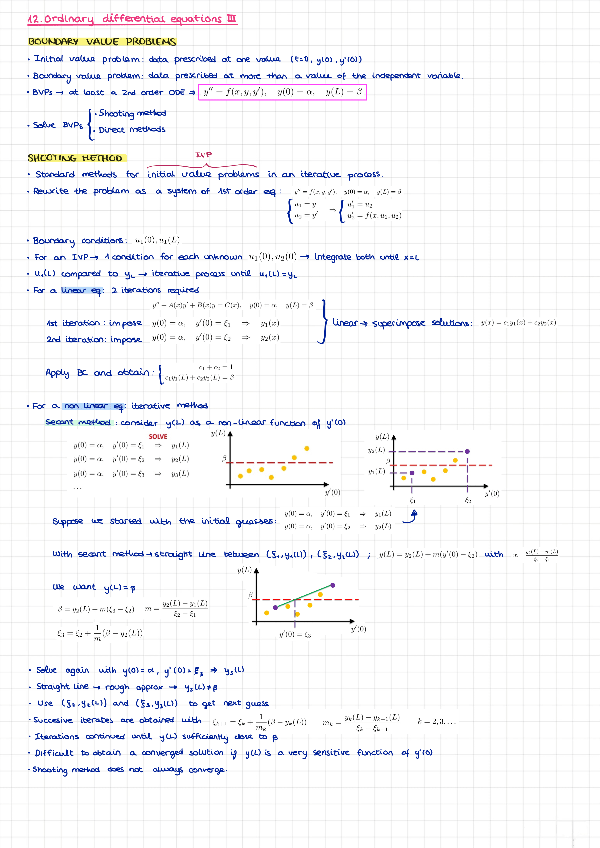 12. Ordinary differential equations III
BOUNDARY VALUE PROBLEMS
· Initial value problem: data prescribed at one value (t=0, y(0), y'(0))
· Boundary value problem: data prescribed at more than a value of the independent variable.
· BVPs → at least a 2nd order ODE ⇒ y'' = f(x, y, y'), y(0) = α, y(L) = β
· Solve BVPs { · Shooting method
· Direct methods
SHOOTING METHOD
IVP
· Standard methods for initial value problems in an iterative process.
· Rewrite the problem as a system of 1st order eq: y'' = f(x, y, y'), y(0) = α, y(L) = β
{ u₁ = y ⇒ { u₁' = u₂
u₂ = y' u₂' = f(x, u₁, u₂)
· Boundary conditions: u₁(0), u₁(L)
· For an IVP → 1 condition for each unknown u₁(0), u₂(0) → Integrate both until x=L
· u₁(L) compared to y_L → iterative process until u₁(L) = y_L
· For a linear eq: 2 iterations required
y'' = A(x)y' + B(x)y + C(x), y(0) = α, y(L) = β
1st iteration: impose y(0) = α, y'(0) = ξ₁ ⇒ y₁(x)
2nd iteration: impose y(0) = α, y'(0) = ξ₂ ⇒ y₂(x)
linear → superimpose solutions: y(x) = c₁y₁(x) + c₂y₂(x)
Apply BC and obtain: { c₁ + c₂ = 1
c₁y₁(L) + c₂y₂(L) = β
· For a non linear eq: iterative method
Secant method: consider y(L) as a non-linear function of y'(0)
SOLVE
y(0) = α, y'(0) = ξ₁ ⇒ y₁(L)
y(0) = α, y'(0) = ξ₂ ⇒ y₂(L)
y(0) = α, y'(0) = ξ₃ ⇒ y₃(L)
...
y(L)
β
y'(0)
y(L)
y₂(L)
β
y₁(L)
ξ₁
ξ₂
y'(0)
Suppose we started with the initial guesses: y(0) = α, y'(0) = ξ₁ ⇒ y₁(L)
y(0) = α, y'(0) = ξ₂ ⇒ y₂(L)
With secant method → straight line between (ξ₁, y₁(L)), (ξ₂, y₂(L)); y(L) = y₂(L) + m(y'(0) − ξ₂) with
We want y(L) = β
β = y₂(L) + m(ξ₃ − ξ₂) m = (y₂(L) − y₁(L))/(ξ₂ − ξ₁)
ξ₃ = ξ₂ + 1/m (β − y₂(L))
y(L)
β
y'(0) = ξ₃
y'(0)
· Solve again with y(0) = α, y'(0) = ξ₃ ⇒ y₃(L)
· Straight line → rough approx → y₃(L) ≠ β
· Use (ξ₂, y₂(L)) and (ξ₃, y₃(L)) to get next guess
· Succesive iterates are obtained with ξₖ₊₁ = ξₖ + 1/mₖ (β − yₖ(L)) mₖ = (yₖ(L) − yₖ₋₁(L))/(ξₖ − ξₖ₋₁) k = 2, 3, ...
· Iterations continued until y(L) sufficiently close to β
· Difficult to obtain a converged solution if y(L) is a very sensitive function of y'(0)
· Shooting method does not always converge.